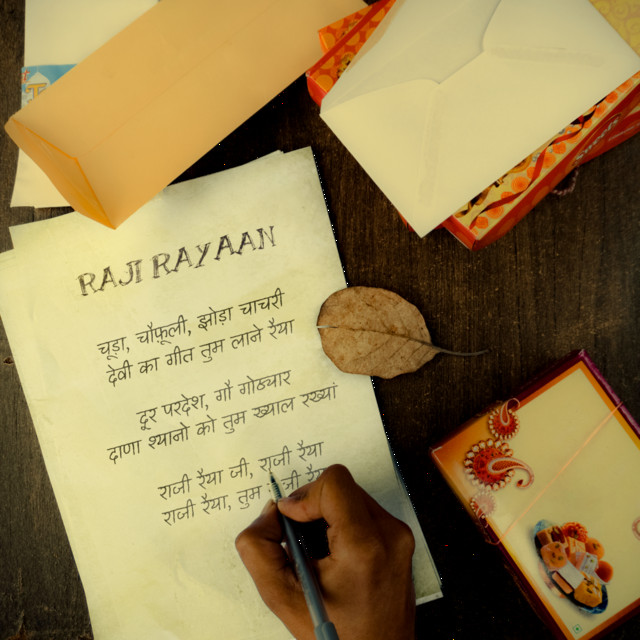 RAJI RAYAAN
चूड़ा, चौफूली, झोड़ा चाचरी
देवी का गीत तुम लाने रैया
दूर परदेश, गौं गोठ्यार
दाणा श्याणो को तुम ख्याल रख्यां
राजी रैया जी, राजी रैया
राजी रैया, तुम